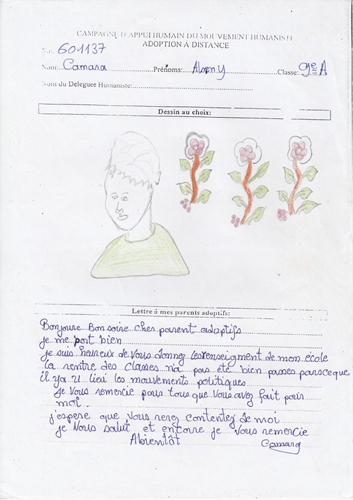 CAMPAGNE D'APPUI HUMAIN DU MOUVEMENT HUMANISTE
ADOPTION A DISTANCE
No: 601137
Nom: Camara Prénoms: Classe: 9e A
Nom du Delegue Humaniste:
Dessin au choix:
Lettre à mes parents adoptifs:
Bonjoure Bon soire cher parent adoptifs
je me port bien
je suis heureux de vous donnez les renseigment de mon école
la rentre des classes na pas eté bien passes parsceque
il ya u lieu les mouvements politiques
Je vous remercie pour tous que vous avez fait pour
moi.
j'espere que vous serez contentez de moi
je vous salut et encore je vous remercie
Abientôt
Camara